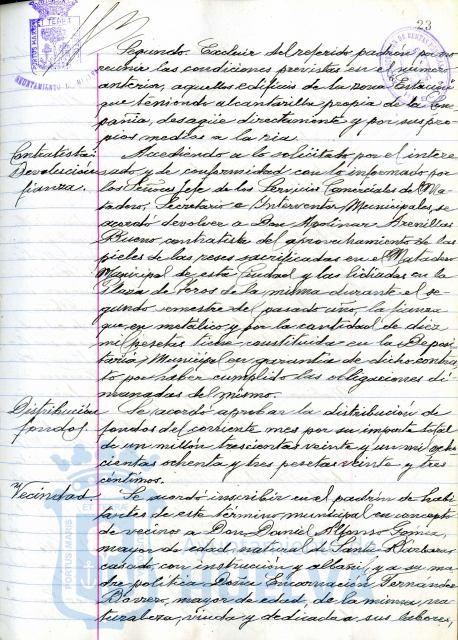 23
Segundo. Excluir del referido padrón por no
reunir las condiciones previstas en el número
anterior, aquellos edificios de la zona Estación
que teniendo alcantarilla propia de la Com-
pañia, desagüe directamente y por sus pro-
pios medios a la ria.
Contratista:
Devolución
fianza.
Accediendo a lo solicitado por el intere-
sado y de conformidad con lo informado por
los Señores Jefe de los Servicios Comerciales del Ma-
tadero, Secretario e Interventor Municipales, se
acordó devolver a Don Apolinar Arenillas
Bueno contratista del aprovechamiento de las
pieles de las reses sacrificadas en el Matadero
Municipal de esta Ciudad y las lidiadas en la
Plaza de Toros de la misma durante el se-
gundo semestre del pasado año, la fianza
que en metálico y por la cantidad de diez
mil pesetas tiene constituida en la Deposi-
taria Municipal en garantia de dicho contra-
to por haber cumplido las obligaciones di-
manadas del mismo.
Distribución
fondos.
Se acordó aprobar la distribución de
fondos del corriente mes por su importe total
de un millón trescientas veinte y un mil ocho-
cientas ochenta y tres pesetas veinte y tres
centimos.
Vecindad.
Se acordó inscribir en el padrón de habi-
tantes de este término municipal en concepto
de vecinos a Don Daniel Alfonso Gómez,
mayor de edad, natural de Santa Barbara
casado, con instrucción y albañil, y a su ma-
dre politica Doña Encarnación Fernández
Borrero, mayor de edad, de la misma na-
turaleza, viuda y dedicada a sus labores,
PORTUS MARIS
AYUNTAMIENTO DE
HUELVA